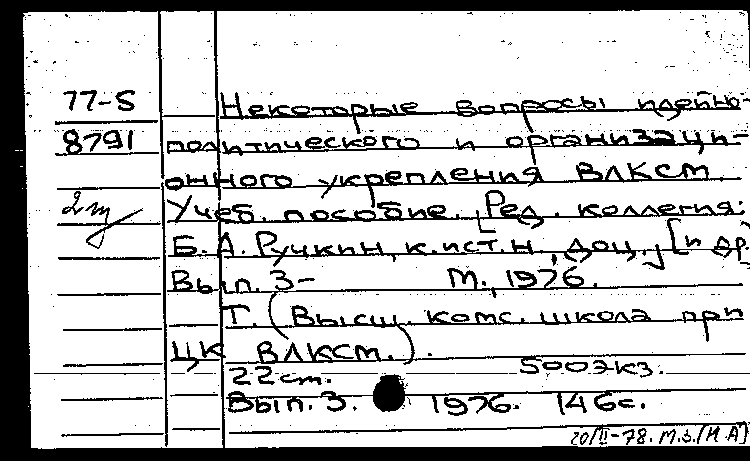 77-5 Некоторые вопросы идейно-
8791 политического и организаци-
онного укрепления ВЛКСМ.
Учеб. пособие. [Ред. коллегия:
Б. А. Ручкин, к. ист. н., доц.] [и др.]
Вып. 3- М., 1976.
Т. (Высш. комс. школа при
ЦК ВЛКСМ.).
22 см. 500 экз.
Вып. 3. 1976. 146 с.
20/II-78. М.З. (И А)